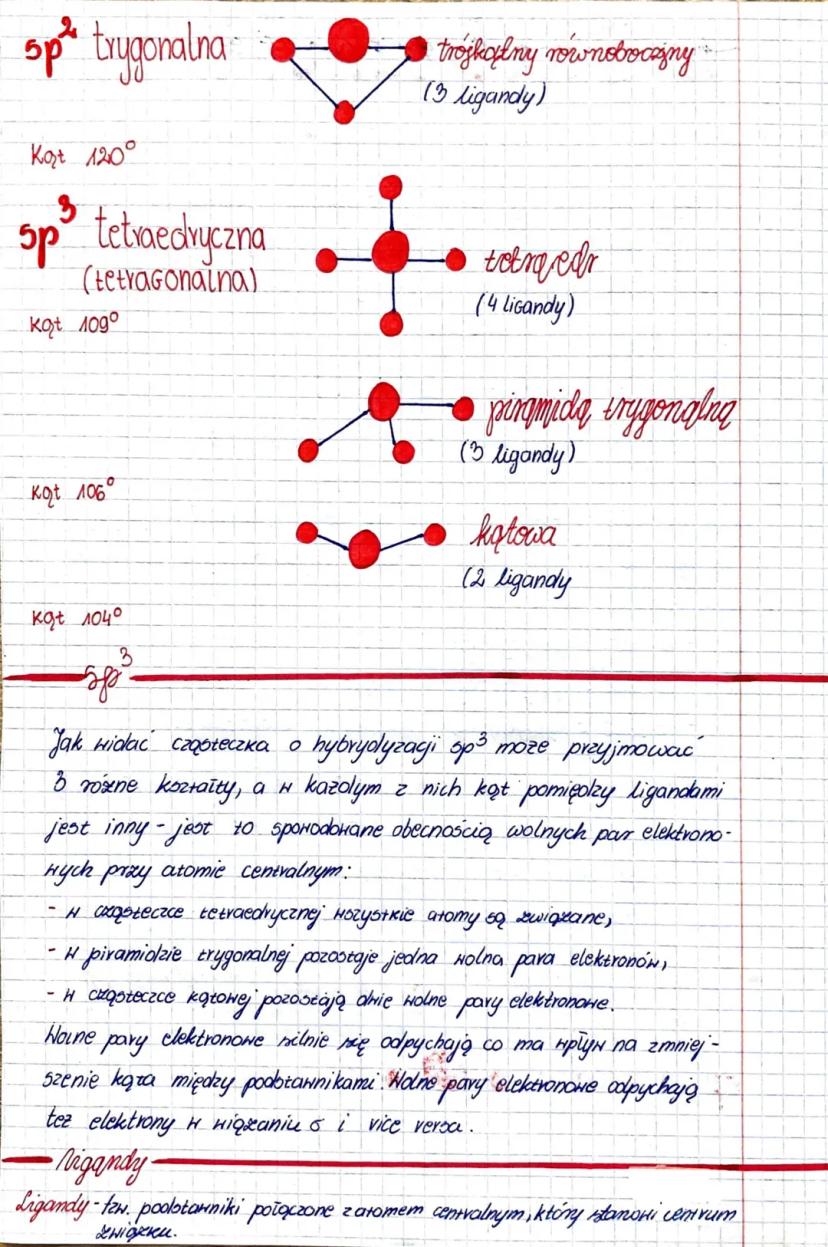 sp² trygonalna
trójkątny równoboczny
(3 ligandy)
Kąt 120°
sp³ tetraedryczna
(tetragonalna)
tetraedr
(4 ligandy)
kąt 109°
piramida trygonalna
(3 ligandy)
kąt 106°
kątowa
(2 ligandy
kąt 104°
sp³
Jak widać cząsteczka o hybrydyzacji sp³ może przyjmować
3 różne kształty, a w każdym z nich kąt pomiędzy ligandami
jest inny - jest to spowodowane obecnością wolnych par elektrono-
wych przy atomie centralnym:
- w cząsteczce tetraedrycznej wszystkie atomy są związane,
- w piramidzie trygonalnej pozostaje jedna wolna para elektronów,
- w cząsteczce kątowej pozostają dwie wolne pary elektronowe.
Wolne pary elektronowe silnie się odpychają co ma wpływ na zmniej-
szenie kąta między podstawnikami. Wolne pary elektronowe odpychają
też elektrony w wiązaniu σ i vice versa.
Ligandy
Ligandy - tzw. podstawniki połączone z atomem centralnym, który stanowi centrum
związku.